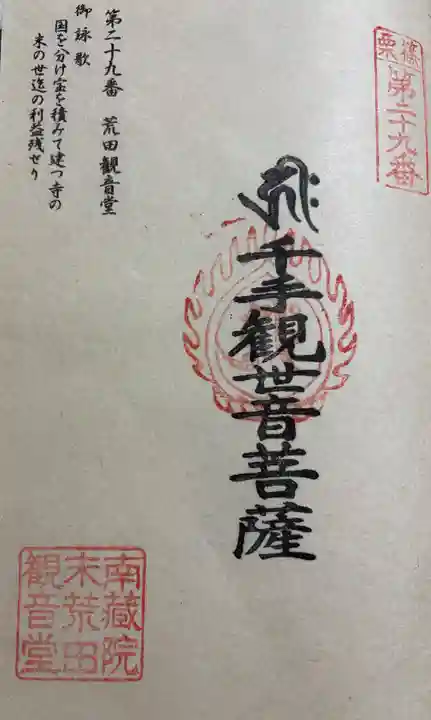 篠栗
第二十九番
千手観世音菩薩
第二十九番 荒田観音堂
御詠歌
国を分け宝を積みて建つ寺の
末の世迄の利益残せり
南蔵院
末荒田
観音堂